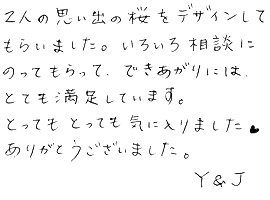 2人の思い出の桜をデザインして
もらいました。いろいろ相談に
のってもらって、できあがりには、
とても満足しています。
とっても とっても気に入りました
ありがとうございました。
Y & J